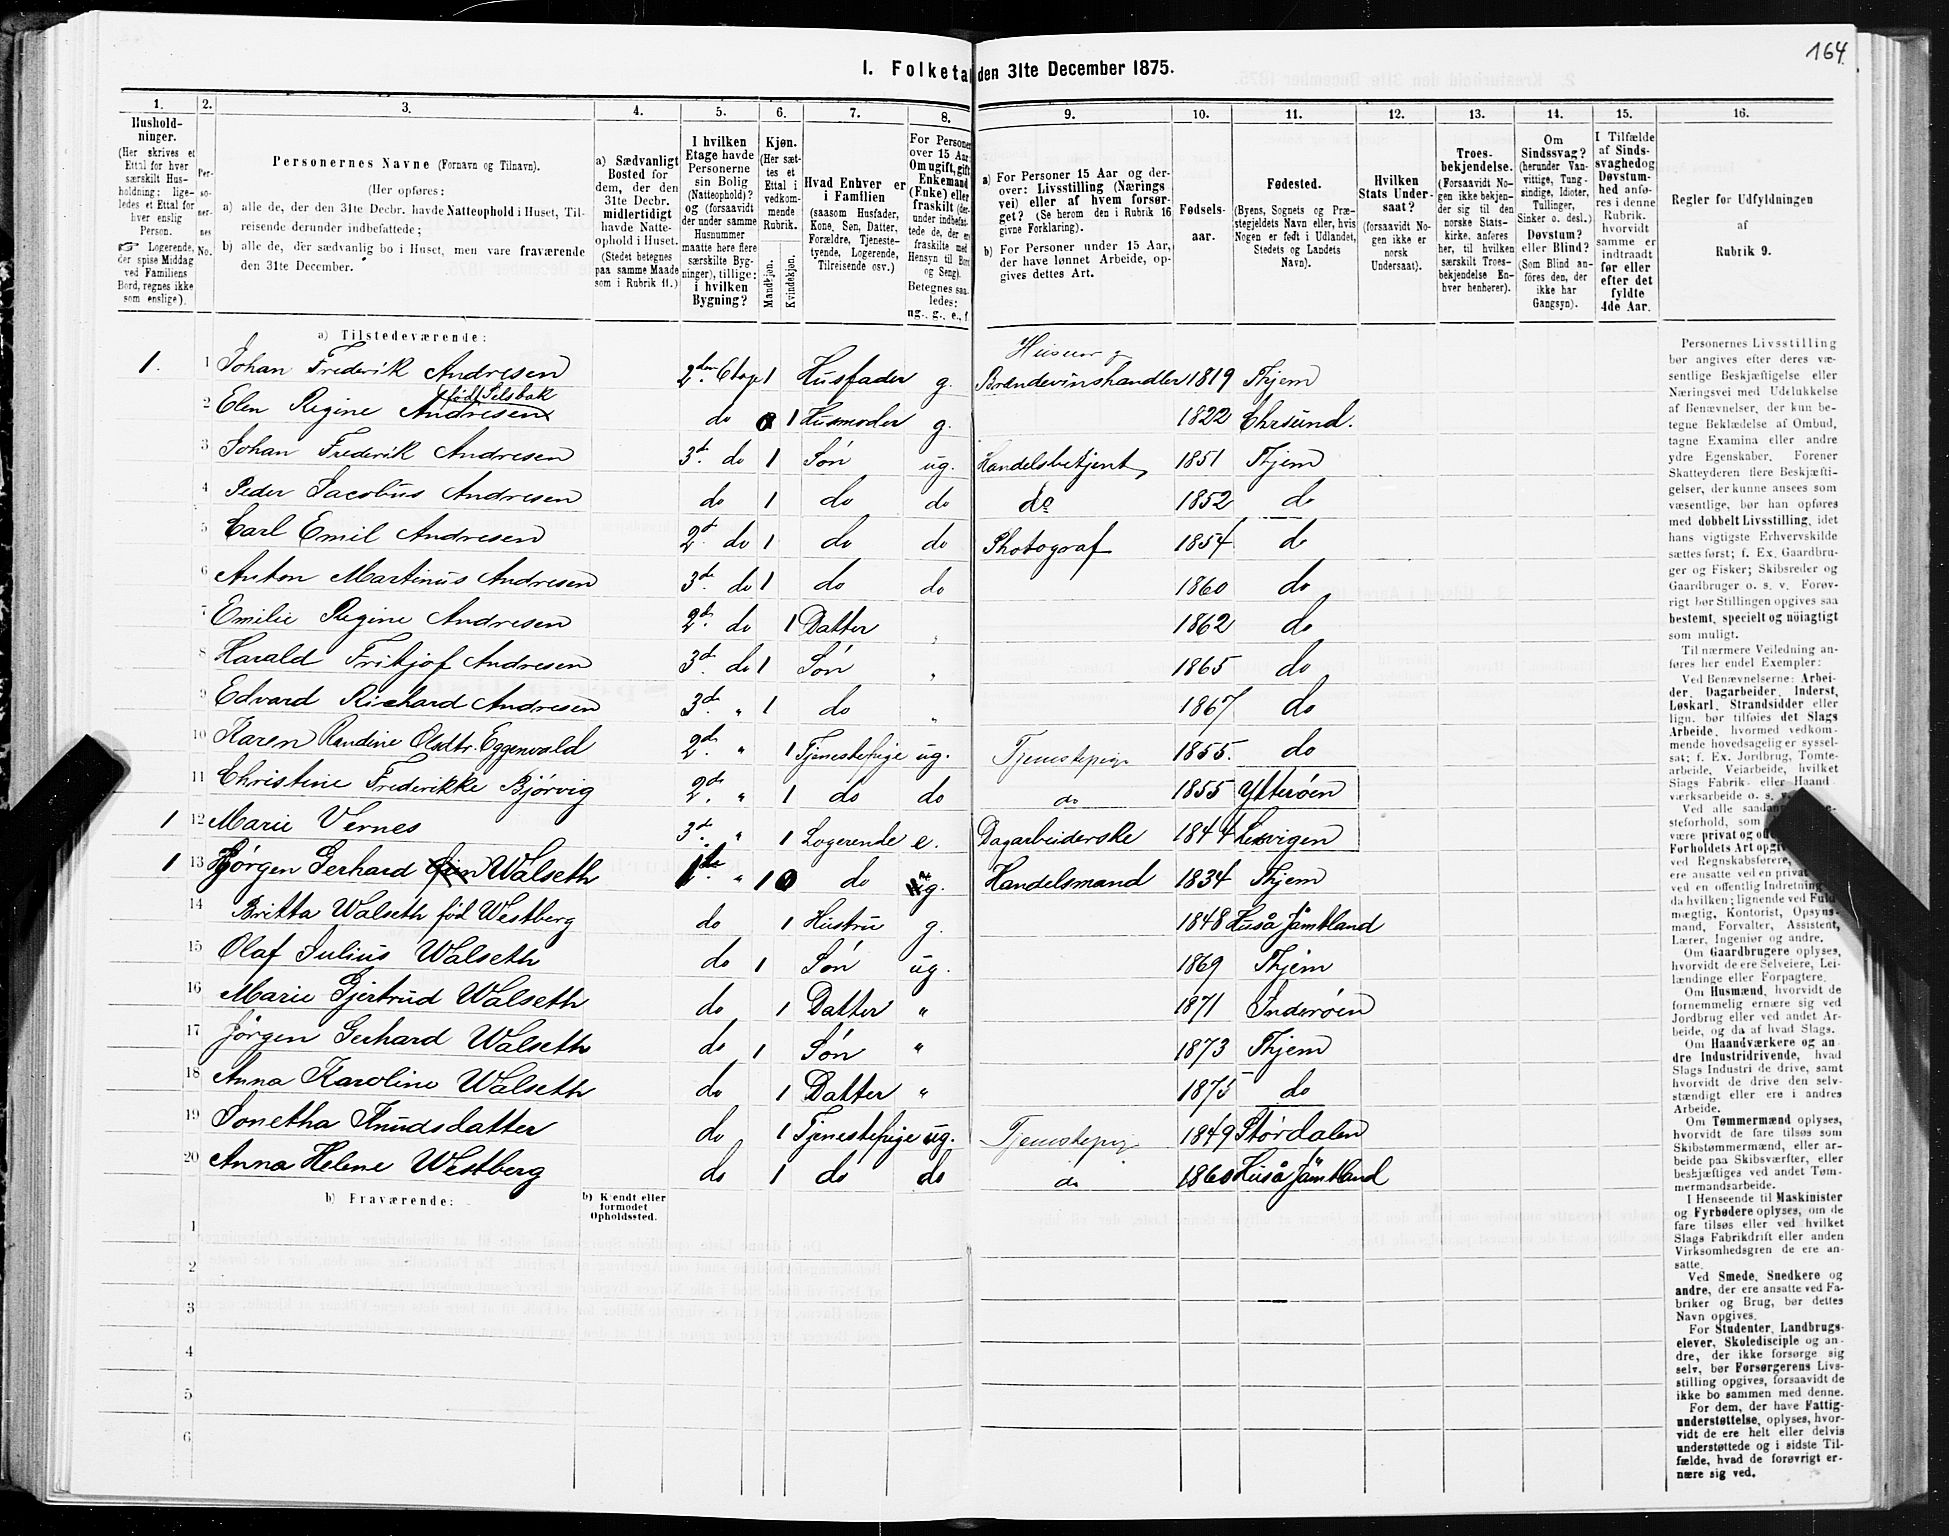 164
I. Folketal den 31te December 1875.
1. 2. 3. 4. 5. 6. 7. 8. 9. 10. 11. 12. 13. 14. 15. 16.
Hushold-
ninger.
(Her skrives et
Ettal for hver
særskilt Hus-
holdning; lige-
ledes et Ettal for
hver enslig
Person.
☞ Logerende,
der spise Middag
ved Familiens
Bord, regnes ikke
som enslige).
Per-
so-
ner-
nes
No.
Personernes Navne (Fornavn og Tilnavn).
(Her opføres:
a) alle de, der den 31te Decbr. havde Natteophold i Huset, Til-
reisende derunder indbefattede;
b) alle de, der sædvanlig bo i Huset, men vare fraværende
den 31te December.
a) Sædvanligt
Bosted for
dem, der den
31te Decbr.
midlertidigt
havde Natte-
ophold i Huset.
(Stedet betegnes
paa samme Maade
som i Rubrik 11.)
I hvilken
Etage havde
Personerne
sin Bolig
(Natteophold)?
og (forsaavidt
der under samme
Husnummer
maatte høre flere
særskilte Byg-
ninger), tillige:
i hvilken
Bygning?
Kjøn.
(Her sæt-
tes et
Ettal i
vedkom-
mende
Rubrik.
Mandkjøn.
Kvindekjøn.
Hvad Enhver er
i Familien
(saasom Husfader,
Kone, Søn, Datter,
Forældre, Tjeneste-
tyende, Logerende,
Tilreisende osv.)
For Personer
over 15 Aar
Om ugift, gift
Enkemand
(Enke) eller
fraskilt (der-
under indbefat-
tede de, der er
fraskilte med
Hensyn til Bord
og Seng).
Betegnes saa-
ledes:
ug., g., e., f.
a) For Personer 15 Aar og der-
over: Livsstilling (Nærings-
vei) eller af hvem forsør-
get? (Se herom den i Rubrik 16
givne Forklaring).
b) For Personer under 15 Aar,
der have lønnet Arbeide, op-
gives dettes Art.
Fødsels-
aar.
Fødested.
(Byens, Sognets og Præ-
stegjeldets Navn eller, hvis
Nogen er født i Udlandet,
Stedets og Landets
Navn).
Hvilken
Stats Under-
saat?
(forsaavidt No-
gen ikke er
norsk
Undersaat).
Troes-
bekjendelse.
(Forsaavidt No-
gen ikke bekjen-
der sig til den
norske Stats-
kirke. anføres
her, til hvilken
særskilt Troes-
bekjendelse En-
hver henhører).
Om
Sindssvag?
(herunder Van-
vittige, Tung-
sindige, Idioter,
Tullinger,
Sinker o. desl.)
Døvstum?
eller Blind?
(Som Blind an-
føres den, der
ikke har
Gangsyn).
I Tilfælde
af Sinds-
svaghed og
Døvstum-
hed anfø-
res i denne
Rubrik.
hvorvidt
samme er
indtraadt
før eller
efter det
fyldte
4de Aar.
Regler for Udfyldningen
af
Rubrik 9.
a) Tilstedeværende:
1. 1 Johan Frederik Andresen 2den Etage 1 Husfader g. Huseier og Brændevinshandler 1819 Thjem
født Selsbak
2 Elen Regine Andresen do 1 Husmoder g. 1822 Chrsund.
3 Johan Frederik Andresen 3d. do 1 Søn ug. Handelsbetjent 1851 Thjem
4 Peder Jacobus Andresen do 1 do do do 1852 do
5 Carl Emil Andresen 2d. do 1 do do Photograf 1854 do
6 Anton Martinus Andresen 3de do 1 do do 1860 do
7 Emilie Regine Andresen 2de. do 1 Datter „ 1862 do
8 Harald Fritjof Andresen 3d. do 1 Søn „ 1865 do
9 Edvard Richard Andresen 3de. „ 1 do „ 1867 do
10 Karen Randine Olsdtr. Eggenvold 2de. „ 1 Tjenestepige ug. Tjenestepige 1855. do
11 Christine Frederikke Bjørvig 2de. „ 1 do do do 1855 Ytterøen
1 12 Marie Vernes 3de. „ 1 Logerende e. Dagarbeiderske 1844 Lexvigen
1 13 Jørgen Gerhard Walseth 1ste. „ 1 do g. Handelsmand 1834 Thjem
14 Britta Walseth fød Westberg do 1 Hustru g. 1848 Huså Jämtland
15 Olaf Julius Walseth do 1 Søn ug. 1869 Thjem
16 Marie Gjertrud Walseth do 1 Datter „ 1871 Inderøen
17 Jørgen Gerhard Walseth do 1 Søn „ 1873 Thjem
18 Anna Karoline Walseth do 1 Datter „ 1875 do
19 Jonetha Knudsdatter do 1 Tjenestepige ug. Tjenestepige 1849 Størdalen
20 Anna Helene Westberg do 1 do do do 1860 Huså Jämtland
b) Fraværende:
b) Kjendt eller
formodet
Opholdssted.
1
2
3
4
5
6
Personernes Livsstilling
bør angives efter deres væ-
sentlige Beskjæftigelse eller
Næringsvei med Udelukkelse
af Benævnelser, der kun be-
tegne Beklædelse af Ombud,
tagne Examina eller andre
ydre Egenskaber. Forener
Skatteyderen flere Beskjæfti-
gelser, der kunne ansees som
væsentlige, bør han opføres
med dobbelt Livsstilling, idet
hans vigtigste Erhvervskilde
sættes først; f. Ex. Gaardbru-
ger og Fisker; Skibsreder og
Gaardbruger o. s. v. Forøv-
rigt bør Stillingen opgives saa
bestemt, specielt og nøiagtigt
som muligt.
Til nærmere Veiledning an-
føres her endel Exempler:
Ved Benævnelserne: Arbei-
der, Dagarbeider, Inderst,
Løskarl, Strandsidder eller
lign. bør tilføies det Slags
Arbeide, hvormed vedkom-
mende hovedsagelig er syssel-
sat; f. Ex. Jordbrug, Tomte-
arbeide, Veiarbeide, hvilket
Slags Fabrik- eller Haand-
værksarbeide o. s.
Ved alle saadan
steforhold, som
være privat og
Forholdets Art
ved Regnskabsførere,
ere ansatte ved en privat
ved en offentlig Indretning
da hvilken; lignende ved Fuld-
mægtig, Kontorist, Opsyns-
mand, Forvalter, Assistent,
Lærer, Ingeniør og andre.
Om Gaardbrugere oplyses,
hvorvidt de ere Selveiere, Lei-
lændinge eller Forpagtere.
Om Husmænd, hvorvidt de
fornemmelig ernære sig ved
Jordbrug eller ved andet Ar-
beide, og da af hvad Slags.
Om Haandværkere og an-
dre Industridrivende, hvad
Slags Industri de drive, samt
hvorvidt de drive den selv-
stændigt eller ere i andres
Arbeide.
Om Tømmermænd oplyses,
hvorvidt de fare tilsøs som
Skibstømmermænd, eller ar-
beide paa Skibsværfter, eller
beskjæftiges ved andet Tøm-
mermandsarbeide.
I Henseende til Maskinister
og Fyrbødere oplyses, om de
fare tilsøs eller ved hvilket
Slags Fabrikdrift eller anden
Virksomhedsgren de ere an-
satte.
Ved Smede, Snedkere og
andre, der ere ansatte ved Fa-
briker og Brug, bør dettes
Navn opgives.
For Studenter, Landbrugs-
elever, Skoledisciple og an-
dre, der ikke forsørge sig
selv, bør Forsørgerens Livs-
stilling opgives, forsaavidt de
ikke bo sammen med denne.
For dem, der have Fattig-
understøttelse, oplyses, hvor-
vidt de ere helt eller delvis
understøttede og i sidste Til-
fælde, hvad de forøvrigt er-
nære sig ved.